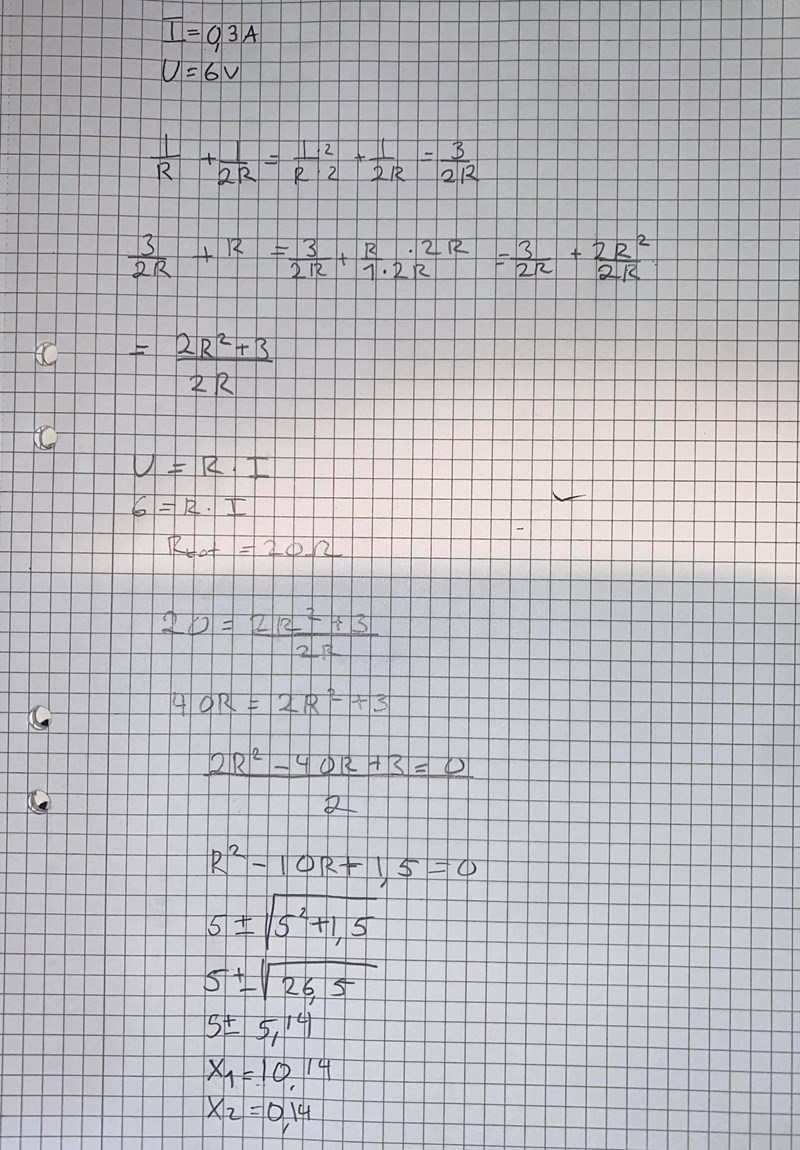 I = 0,3A
U = 6V
1/R + 1/2R = 1/R · 2/2 + 1/2R = 3/2R
3/2R + R = 3/2R + R · 2R/1 · 2R = 3/2R + 2R²/2R
= 2R² + 3/2R
U = R · I
6 = R · I
Rtot = 20Ω
20 = 2R² + 3/2R
40R = 2R² + 3
2R² - 40R + 3 = 0/2
R² - 10R + 1,5 = 0
5 ± √5² + 1,5
5 ± √26,5
5 ± 5,14
X₁ = 10,14
X₂ = 0,14